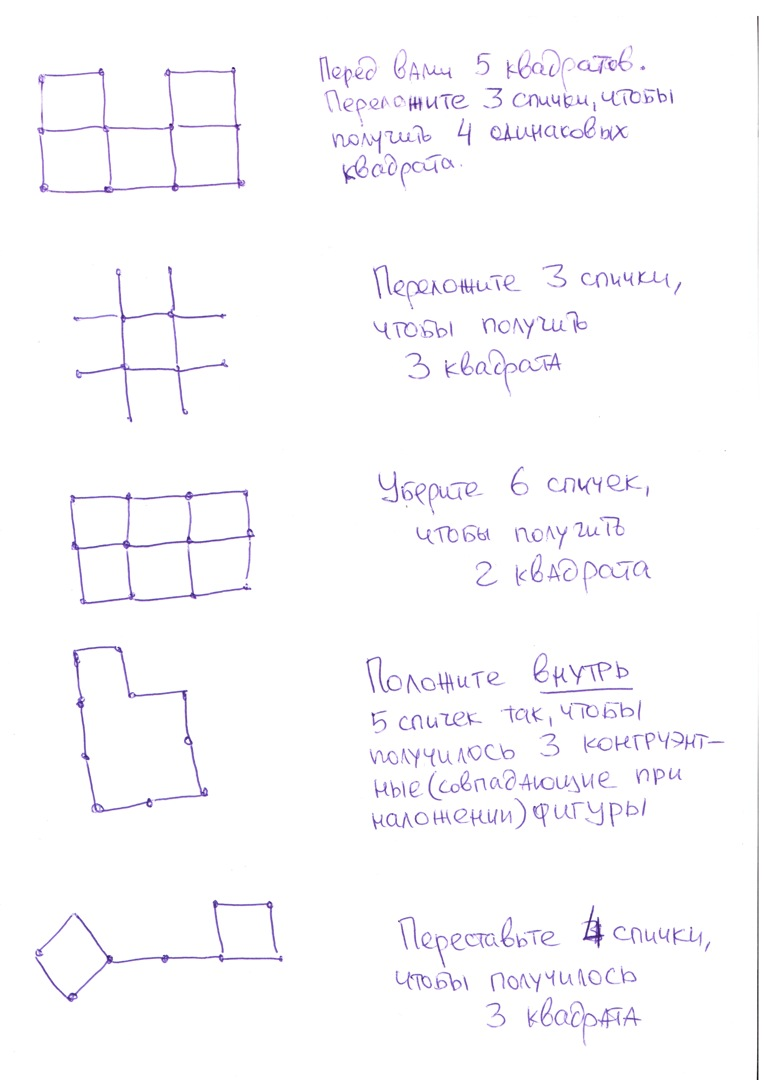 Перед вами 5 квадратов.
Переложите 3 спички, чтобы
получить 4 одинаковых
квадрата.
Переложите 3 спички,
чтобы получить
3 квадрата
Уберите 6 спичек,
чтобы получить
2 квадрата
Положите внутрь
5 спичек так, чтобы
получилось 3 конгруэнт-
ные (совпадающие при
наложении) фигуры
Переставьте 4 спички,
чтобы получилось
3 квадрата